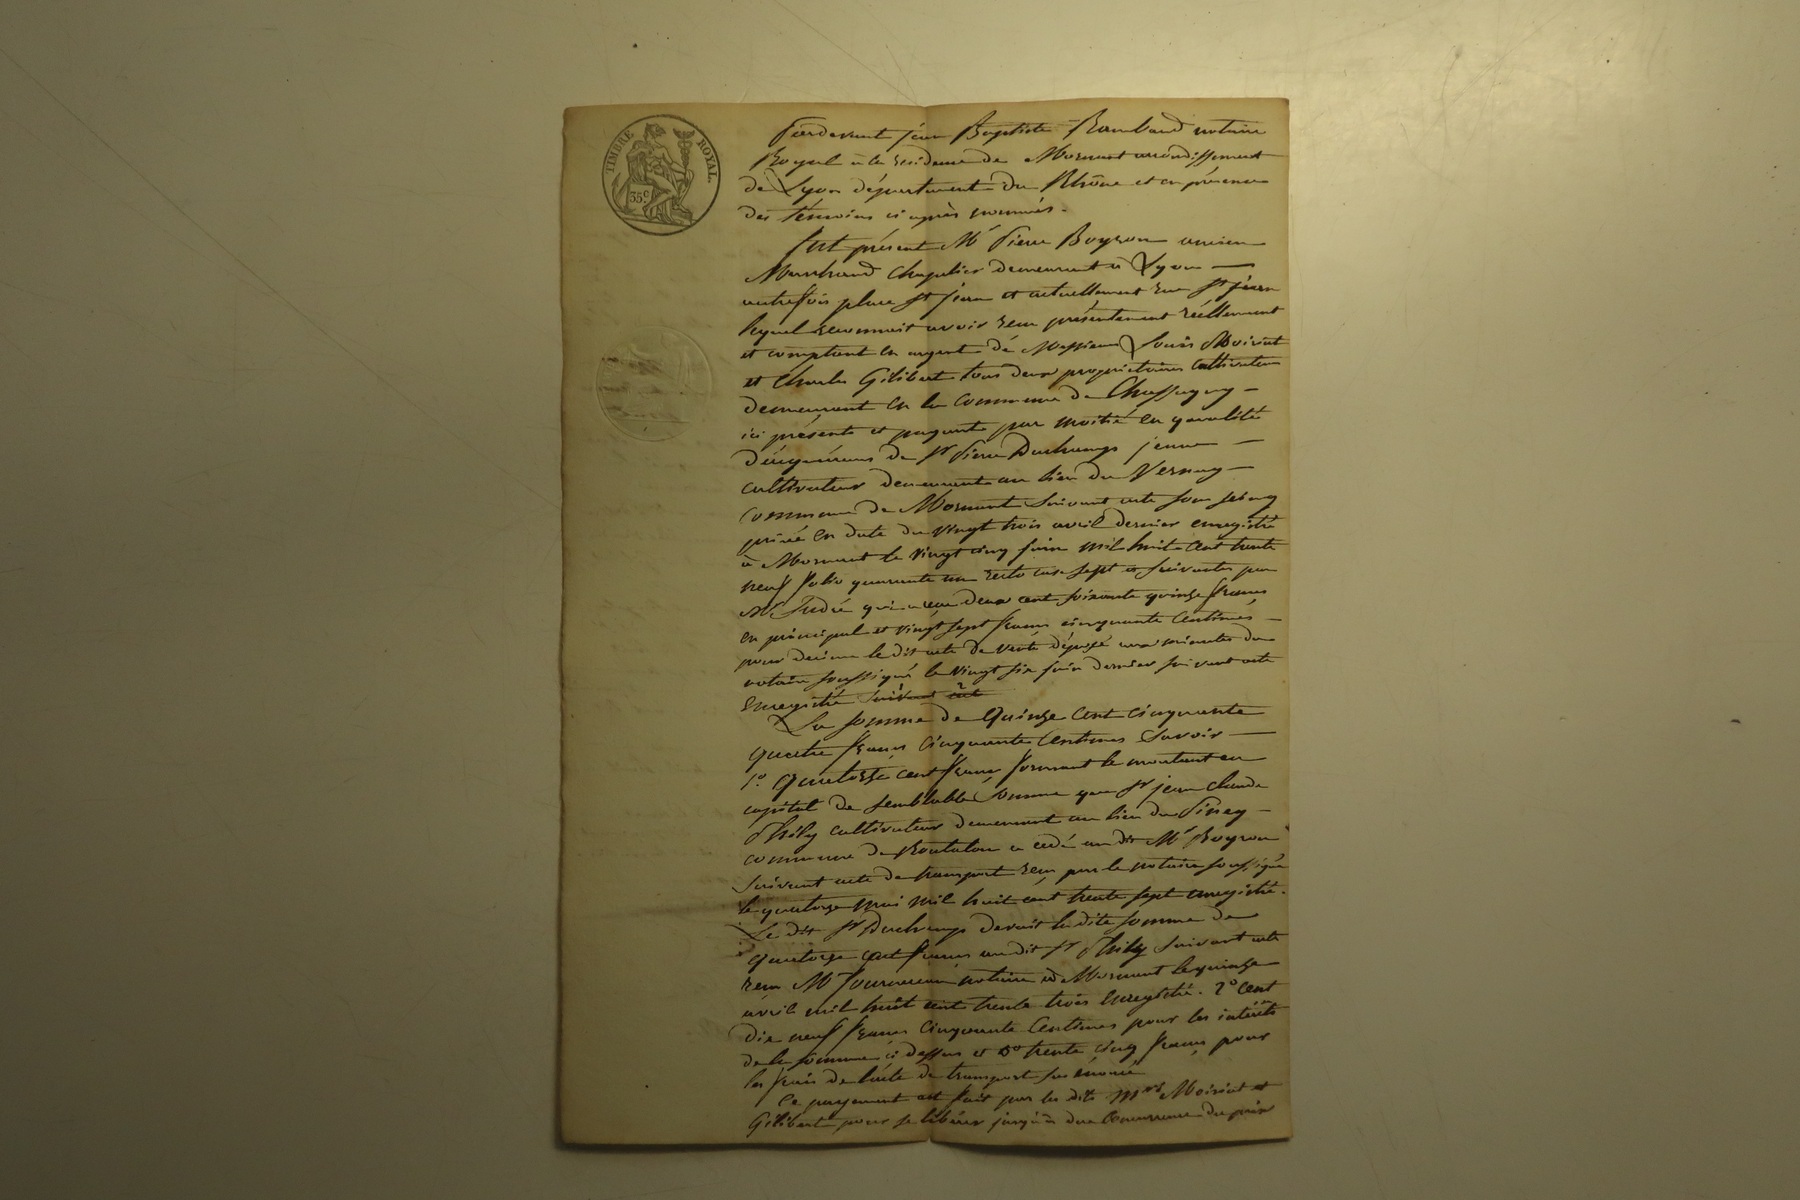 TIMBRE ROYAL.
35c
Pardevant jean Baptiste Rambaud notaire
Royal à la residence de Mornant arrondissement
de Lyon département du Rhône et en présence
des témoins ci après nommés.
fut présent Mr Pierre Boyron ancien
Marchand Chapelier demeurant à Lyon
autrefois place st jean et actuellement rue st jean
lequel reconnait avoir reçu présentement réellement
et comptant en argent de Messieurs Louis Moiriat
et Charles Gilibert tous deux propriétaires Cultivateurs
demeurant en la commune de Chassagny
ici présents et payants par moitié en qualité
d'acquéreurs de sr Pierre Duchamps jeune
cultivateur demeurant au lieu du Vernay
commune de Mornant suivant acte sous seing
privé en date du vingt trois avril dernier enregistré
à Mornant le vingt cinq juin mil huit cent trente
neuf folio quarante un recto case sept et suivantes par
Mr qui a reçu deux cent soixante quinze francs
en principal et vingt sept francs cinquante centimes
pour decime le dit acte de vente déposé aux minutes du
notaire soussigné le vingt six juin dernier suivant acte
enregistré suivant acte
La somme de Quinze cent cinquante
quatre francs cinquante centimes Savoir
1o quatorze cent francs formant le montant en
capital de semblable somme que sr jean claude
Thily cultivateur demeurant au lieu du Piney
commune de Rontalon a cédé au dit Mr Boyron
suivant acte de transport reçu par le notaire soussigné
le quatorze mai mil huit cent trente sept enregistré.
Le dit sr Duchamps devait la dite somme de
quatorze cent francs au dit sr Thily suivant acte
reçu Mr notaire à Mornant le quinze
avril mil huit cent trente trois enregistré. 2o cent
dix neuf francs cinquante centimes pour les intérêts
de la somme ci dessus et 3o trente cinq francs pour
les frais de l'acte de transport sus énoncé
Ce payement est fait par les dits Mrs Moiriat et
Gilibert pour se libérer jusqu'à due concurrence du prix